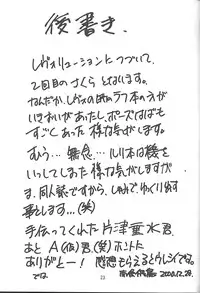 後書き.
レヴォリューションについて、
2回目のさくら となります。
なんだか、レヴォのほうがラフ本の方が
いきおいがあったし、ポーズはばも
すごくあった様な気がします。
むう…無念… ルリ本は機を
いっしてしまった様な気がしますが
ま、同人誌ですから、しゅみで、ゆっくり
します…(笑)
手伝ってくれた片津垂水君。
あと A(仮)君(笑)ホントに
ありがとー! 感想もらえるとウレシイです。
では
2000.12.28.
23